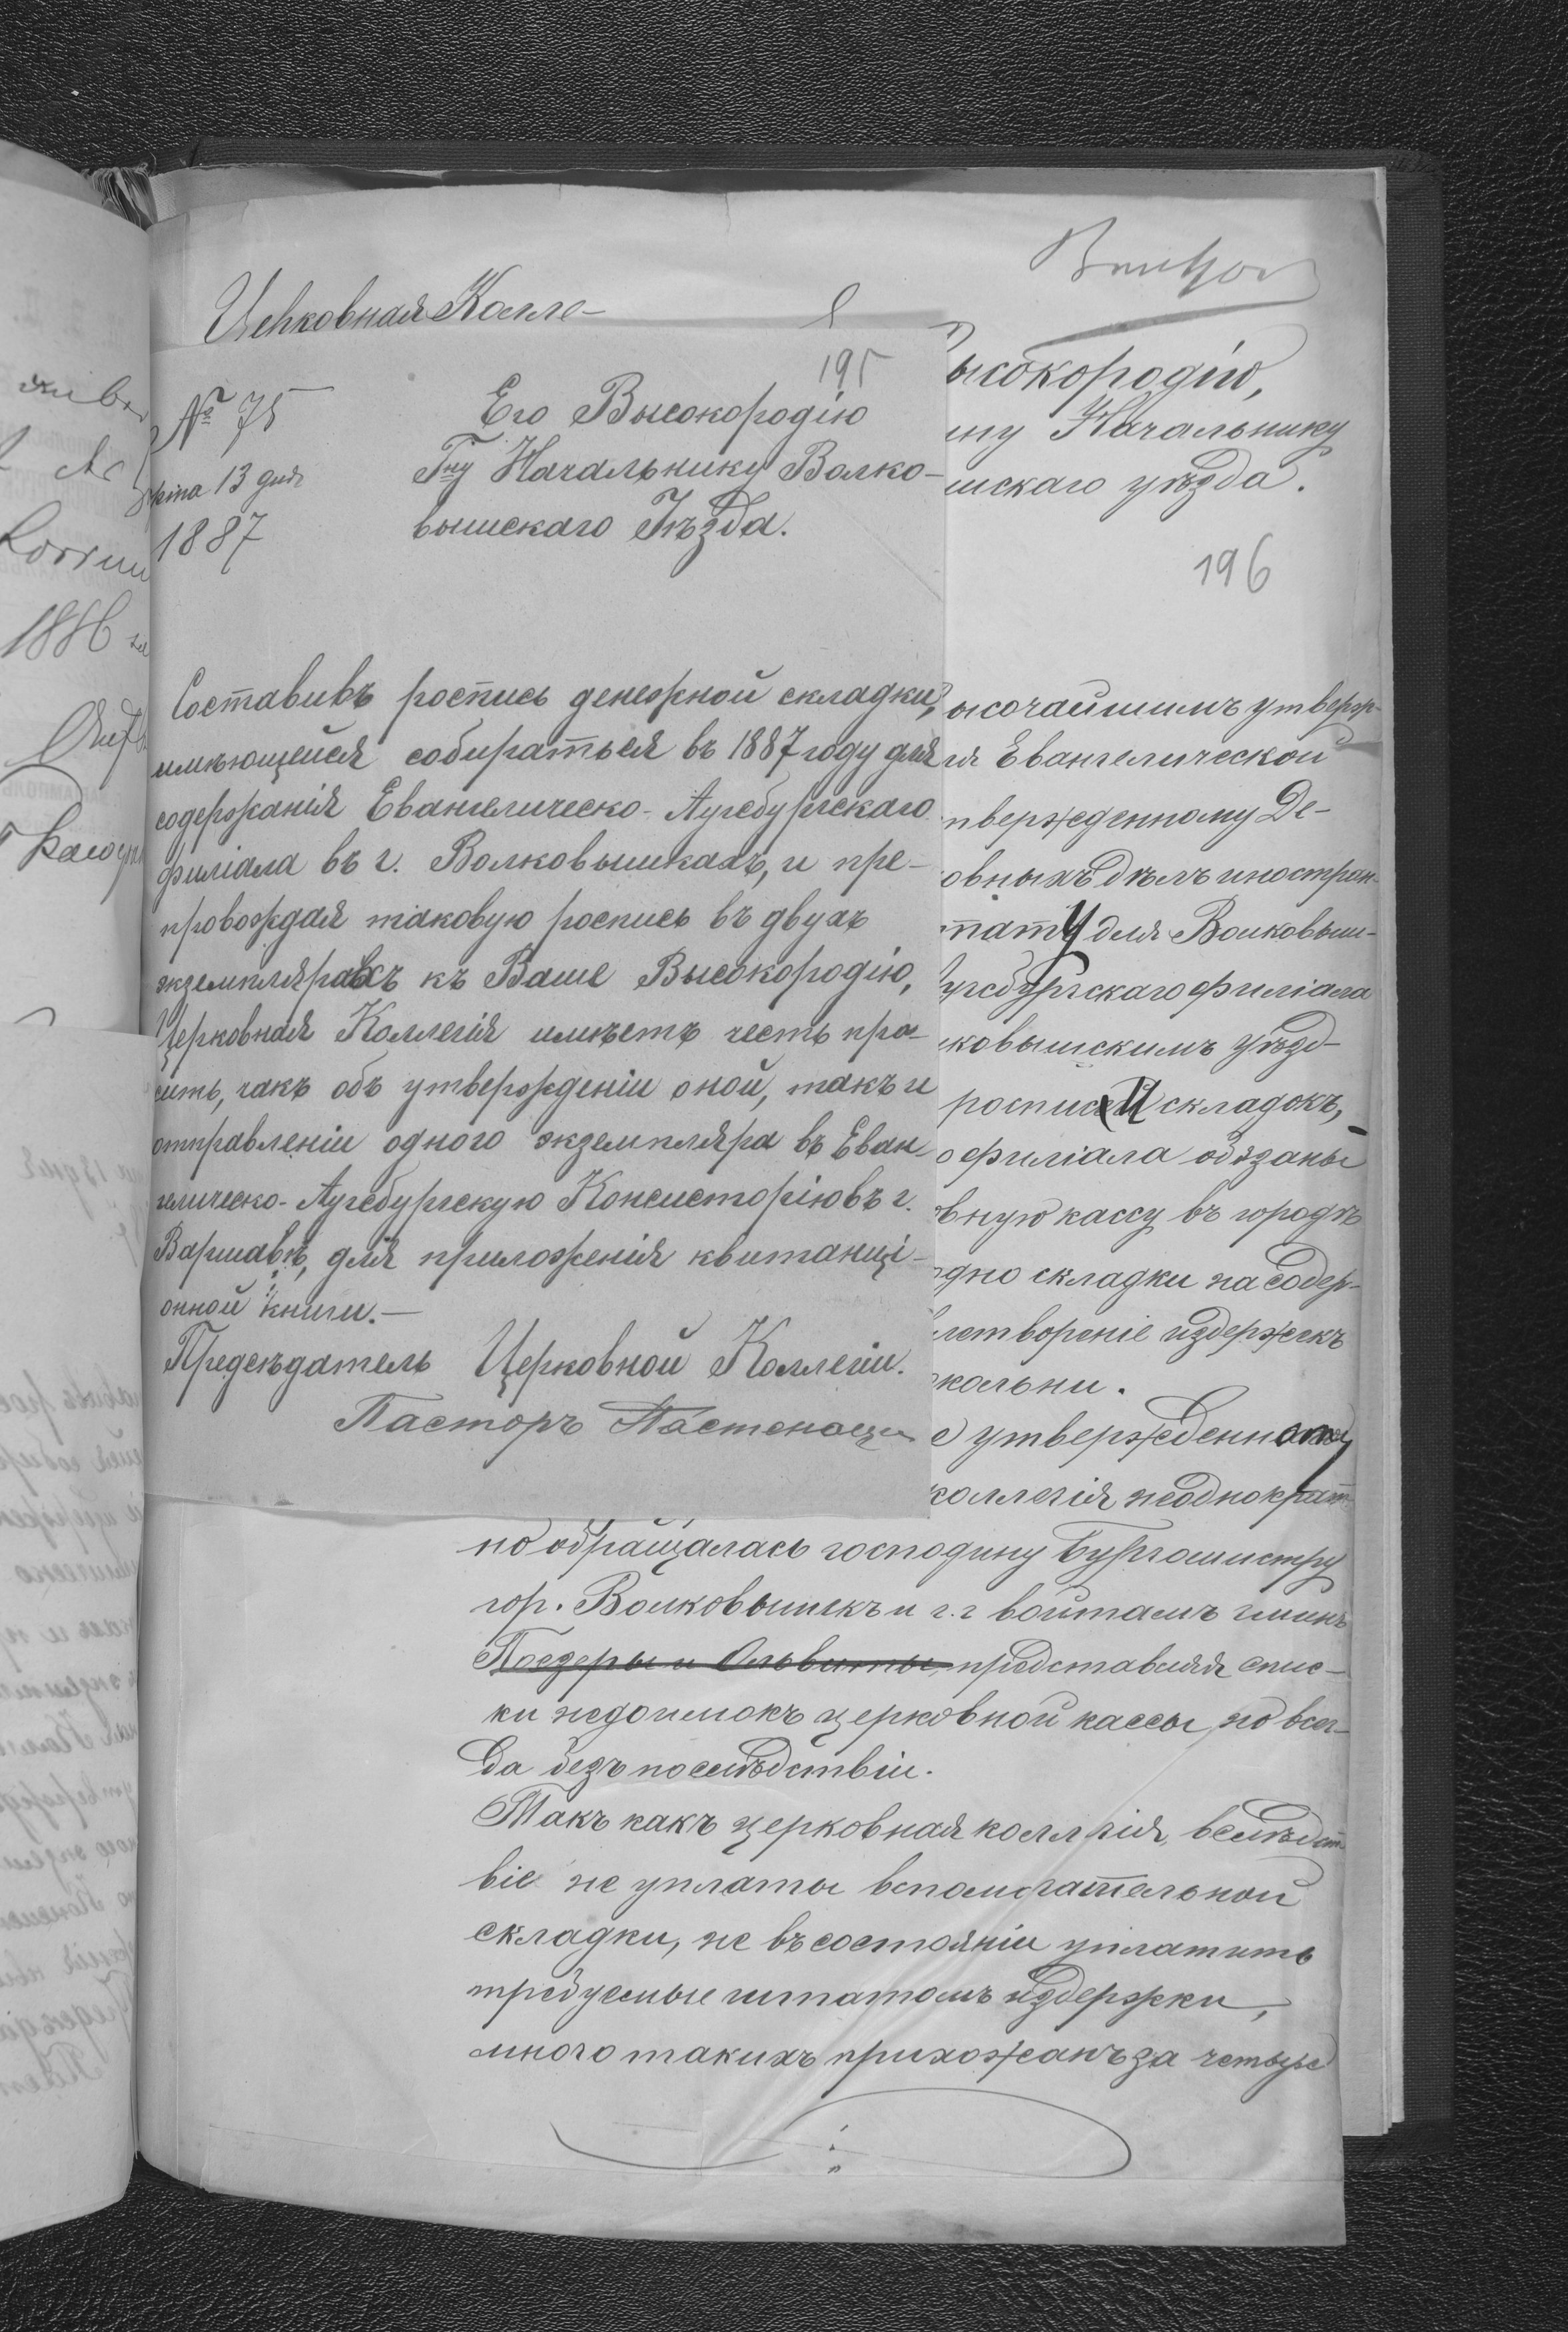 Церковная Колле-
195
№ 75
13 дня
1887
Его Высокородію
Гну Начальнику Волко-
вышскаго Уѣзда.
Составивъ роспись денежной складки,
имѣющейся собираться въ 1887 году для
содержанія Евангелическо-Аугсбургскаго
филіала въ г. Волковышкахъ, и пре-
провождая таковую роспись въ двухъ
экземплярахъ къ Ваше Высокородію,
Церковная Коллегія имѣетъ честь про-
сить, какъ объ утвержденіи оной, такъ и
отправленіи одного экземпляра въ Еван-
гелическо-Аугсбургскую Консисторію въ г.
Варшавѣ, для приложенія квитанці-
онной книги.—
Предсѣдатель Церковной Коллегіи.
Пасторъ
ысокородію,
ину Начальнику
шскаго уѣзда.
196
ысочайшимъ утверж-
ія Евангелической
твержденному Де-
овныхъ дѣлъ иностран-
тату для Волковыш-
угсбургскаго филіала
ковышскимъ уѣзд-
росписи складокъ,
о филіала обязаны
овную кассу въ городѣ
одно складки на содер-
летвореніе издержекъ
кольни.
е утвержденному
коллегія неоднократ-
но обращалась господину Бургомистру
гор. Волковышкъ и г.г войтамъ гминъ
Поезеры и Ольвиты, представляя спис-
ки недоимокъ церковной кассы, но всег-
да безъ послѣдствіи.
Такъ какъ церковная коллегія, вслѣдст-
віе не уплаты вспомогательной
складки, не въ состояніи уплатить
требуемые штатомъ издержки,
много такихъ прихожанъ за четыре
1886